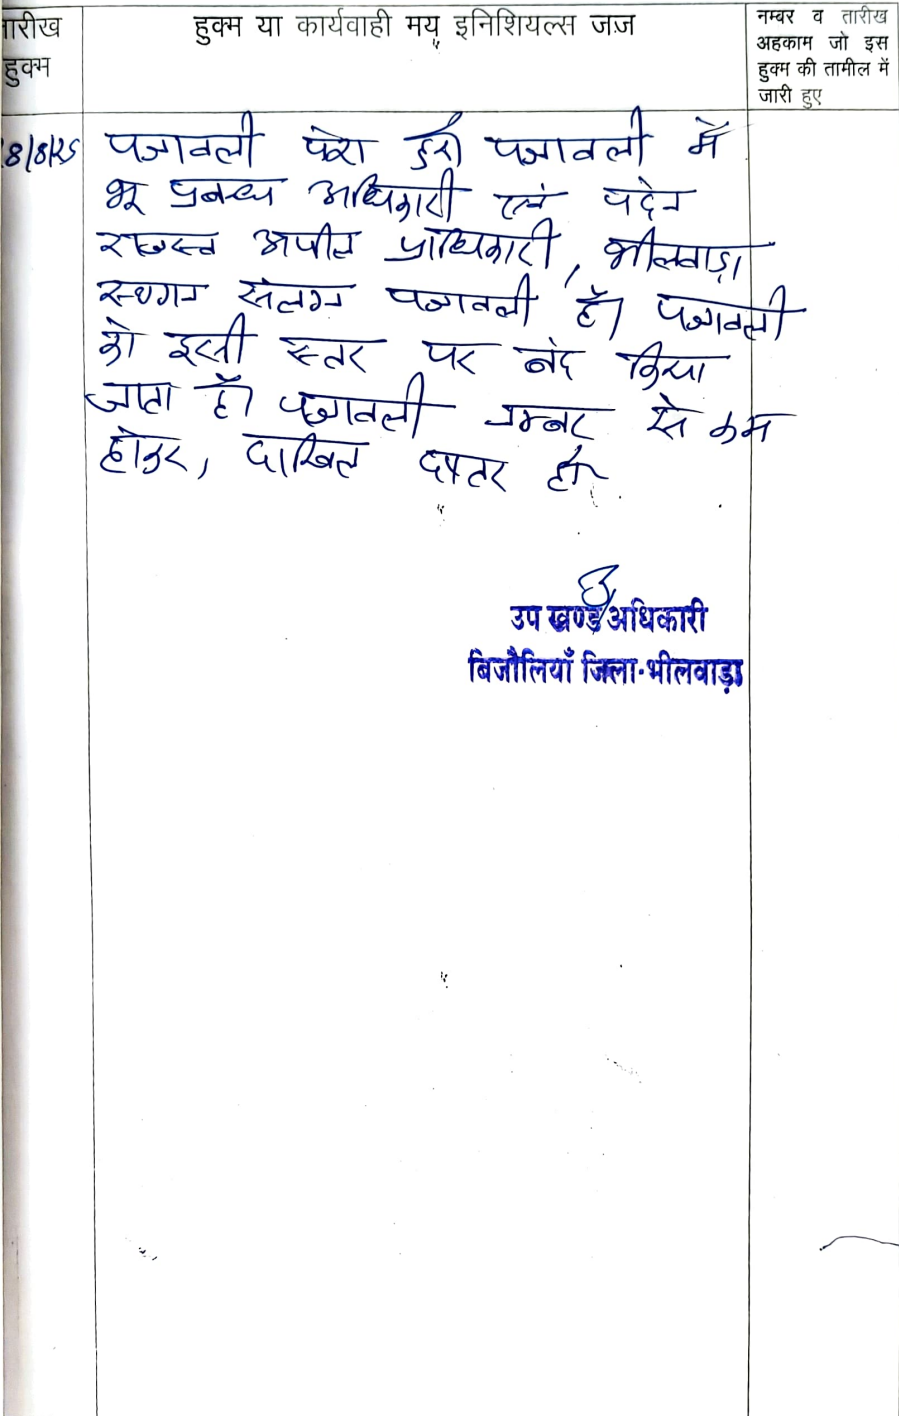 तारीख
हुक्म
हुक्म या कार्यवाही मय इनिशियल्स जज
नम्बर व तारीख
अहकाम जो इस
हुक्म की तामील में
जारी हुए
8/8/25 पत्रावली पेश हुई। पत्रावली में
भू प्रबन्ध अधिकारी एवं पदेन
राजस्व अपील प्राधिकारी, भीलवाड़ा
स्थगन संलग्न पत्रावली है। पत्रावली
को इसी स्तर पर बंद किया
जाता है। पत्रावली नम्बर से कम
होकर, दाखिल दफ्तर हो
उप खण्ड अधिकारी
बिजौलियाँ जिला-भीलवाड़ा